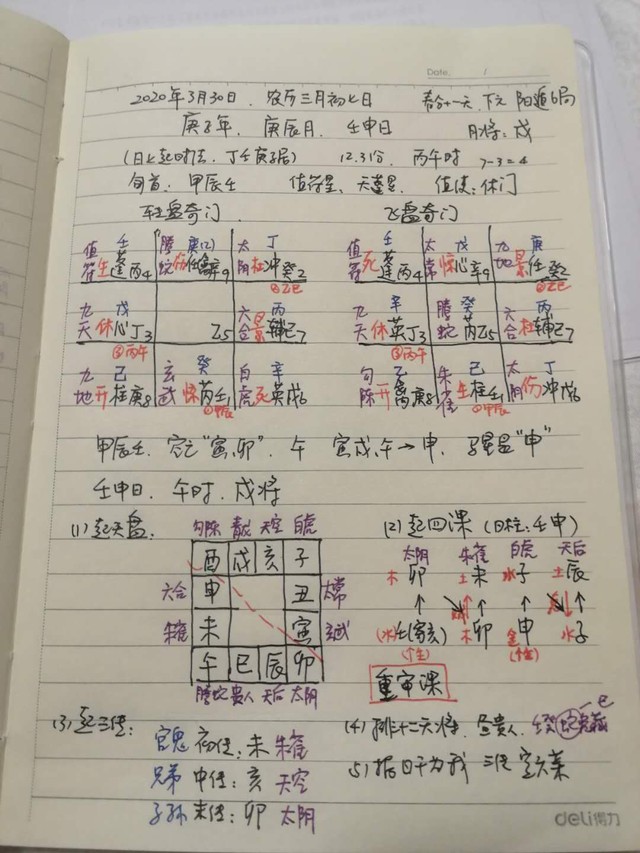 Date. /
2020年3月30日. 农历三月初七日 春分十一天. 下元 阳遁6局
庚子年. 庚辰月. 壬申日 月将: 戌
(日上起时法. 丁壬庚子居) 12.31分. 丙午时 7-3=4
旬首. 甲辰壬 值符星. 天蓬星. 值使: 休门
转盘奇门. 飞盘奇门
值符 壬 生蓬丙4 腾蛇 庚(乙) 伤任 辛9 太阴 丁 杜冲癸2 值符 壬 死蓬丙4 太常 戊 惊心辛9 九地 庚 景任癸2
②乙巳 ②乙巳
九天 戊 休心丁3 乙5 六合 丙 景辅己7 九天 辛 休英丁3 腾蛇 癸 芮乙5 六合 丙 杜辅己7
③丙午 ③丙午
九地 己 开柱庚8 玄武 癸 惊芮壬1 白虎 辛 死英戊6 勾陈 乙 开禽庚8 朱雀 己 生柱壬1 太阴 丁 伤冲戊6
①甲辰 ①甲辰
甲辰壬. 空亡"寅.卯". 午 寅戌午→申. 马星盘"申"
壬申日. 午时. 戌将
(1) 起天盘. (2) 起四课 (日柱: 壬申)
勾陈 青龙 天空 白虎 太阴 朱雀 白虎 天后
酉 戌 亥 子 木卯 土未 水子 土辰
六合 申 丑 太常
朱雀 未 寅 玄武 (水)壬(寄亥) 木卯 金申 水子
午 巳 辰 卯
腾蛇 贵人 天后 太阴 重审课
(3) 起三传: (4) 排十二天将. 昼贵人.
官鬼 初传: 未 朱雀
兄弟 中传: 亥 天空 (5) 据日干为我 三传定六亲
子孙 末传: 卯 太阴
deli得力